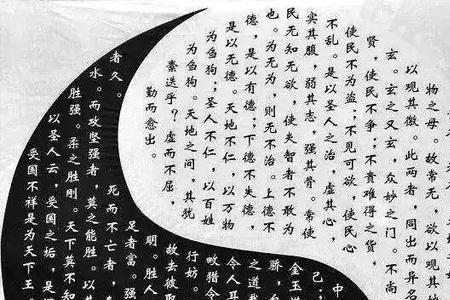 物之母。故常无，欲以观其
以观其徼。此两者，同出而异名
玄。玄之又玄，众妙之门。不尚
贤，使民不争；不贵难得之货，
使民不为盗；不见可欲，使民心
不乱。是以圣人之治，虚其心，
实其腹，弱其志，强其骨。常使
民无知无欲，使夫智者不敢为
也。为无为，则无不治。上德不
德，是以有德；下德不失德，
是以无德。天地不仁，以万物
为刍狗；圣人不仁，以百姓
为刍狗。天地之间，其犹
橐迭乎？虚而不屈，
勤而愈出。
中
己，
金玉
骄，自
之道
令人耳
畋猎令
行妨。
故去彼取
明。胜人
足者富。强
死而不亡者，
者久。
水。而攻坚强者，莫之能胜。以其
胜强。柔之胜刚。天下莫不知
以圣人云，受国之垢，是
受国不祥是为天下王